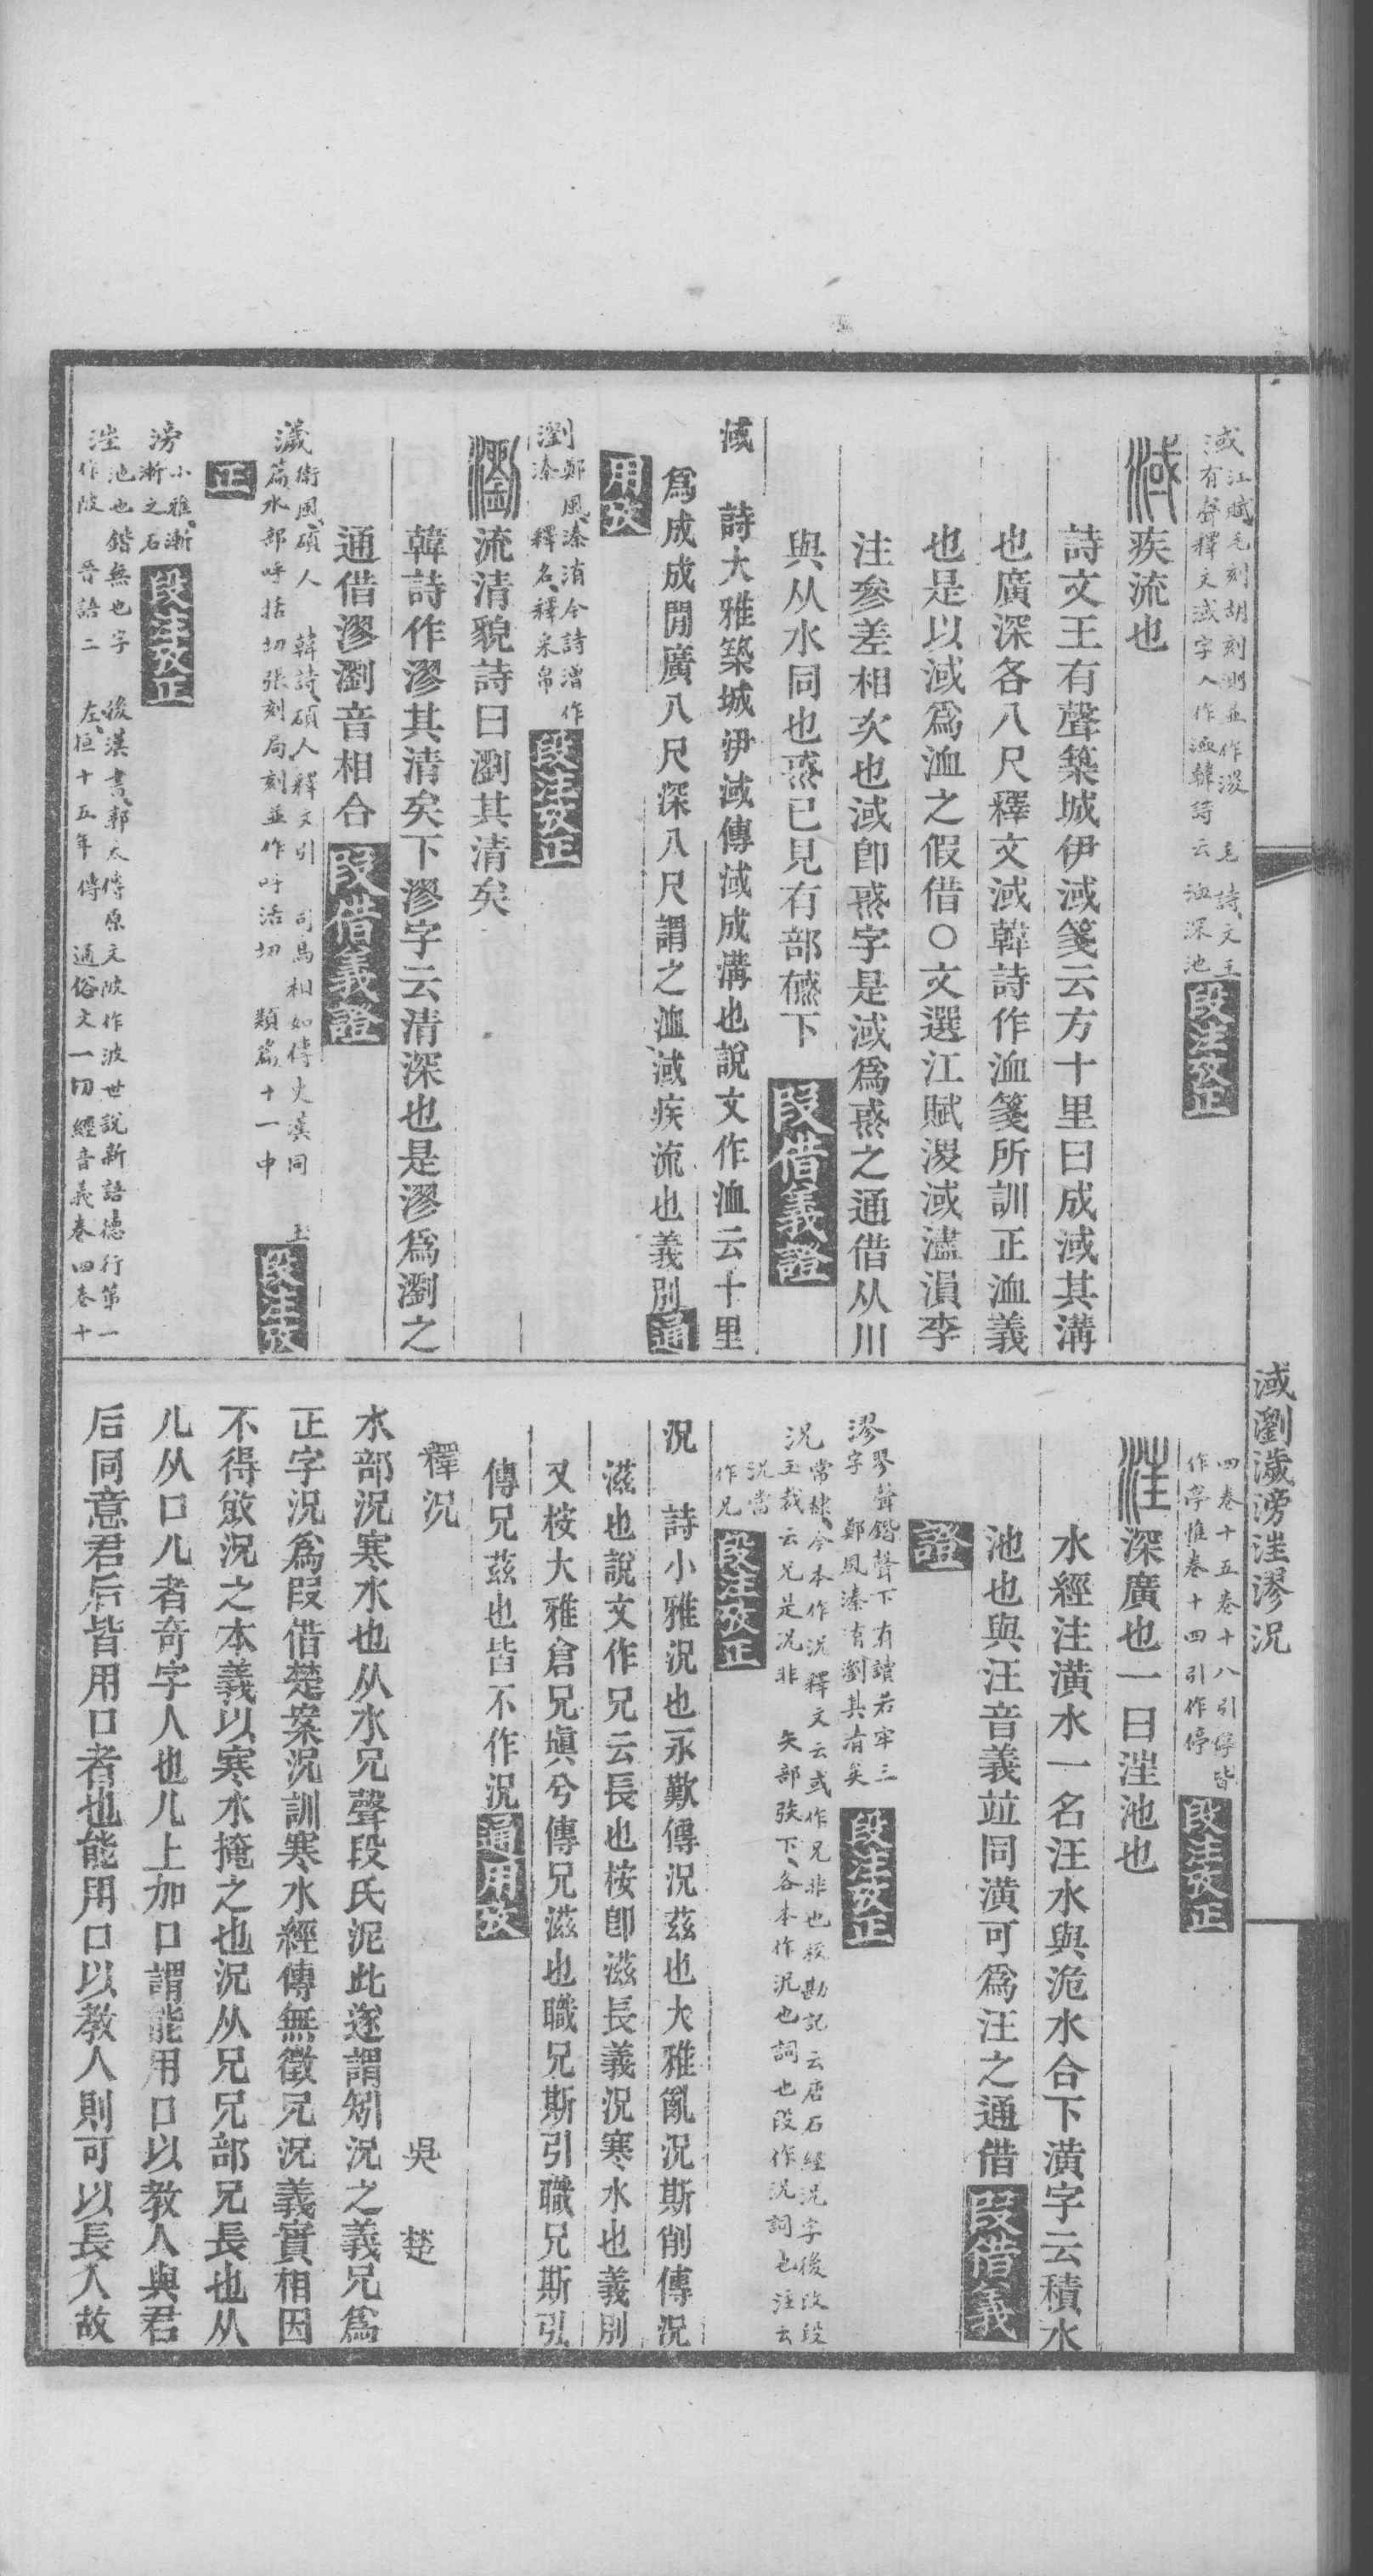 淢 江賦毛刻胡刻測並作淴 毛詩文王
有聲釋文淢字又作洫韓詩云洫深池 段注攷正
淢疾流也
詩文王有聲築城伊淢箋云方十里曰成淢其溝
也廣深各八尺釋文淢韓詩作洫箋所訓正洫義
也是以淢爲洫之假借○文選江賦淴淢濜溳李
注參差相次也淢卽惐字是淢爲惐之通借从川
與从水同也惐已見有部䖆下 段借義證
淢 詩大雅築城伊淢傳淢成溝也說文作洫云十里
爲成成閒廣八尺深八尺謂之洫淢疾流也義別 通
用攷
瀏 鄭風溱洧今詩溍作
溱 釋名釋采帛 段注攷正
瀏流清貌詩曰瀏其清矣
韓詩作漻其清矣下漻字云清深也是漻爲瀏之
通借漻瀏音相合 段借義證
濊 衛風碩人 韓詩碩人釋文引 司馬相如傳史漢同 玉
篇水部呼括切張刻局刻並作呼活切 類篇十一中 段注攷
正
滂 小雅漸
漸之石 段注攷正
湟 池也鍇無也字 後漢書郭太傳原文陂作波世說新語德行第一
作陂 晉語二 左桓十五年傳 通俗文一切經音義卷四卷十
淢瀏濊滂湟漻況
四卷十五卷十八引停皆
作亭惟卷十四引作停 段注攷正
湟深廣也一曰湟池也
水經注潢水一名汪水與洈水合下潢字云積水
池也與汪音義竝同潢可爲汪之通借 段借義
證
漻 翏聲鍇聲下有讀若牢三
字 鄭風溱洧瀏其清矣 段注攷正
況 常棣今本作況釋文云或作兄非也校勘記云唐石經況字後改段
玉裁云兄是況非 矢部矤下各本作況也詞也段作況詞也注云
況當
作兄 段注攷正
況 詩小雅況也永歎傳況茲也大雅亂況斯削傳況
滋也說文作兄云長也桉卽滋長義況寒水也義別
又桉大雅倉兄塡兮傳兄滋也職兄斯引職兄斯弘
傳兄茲也皆不作況 通用攷
釋況 吳楚
水部況寒水也从水兄聲段氏泥此遂謂矧況之義兄爲
正字況爲叚借楚案況訓寒水經傳無徵兄況義實相因
不得敓況之本義以寒水掩之也況从兄兄部兄長也从
儿从口儿者奇字人也儿上加口謂能用口以敎人與君
后同意君后皆用口者也能用口以敎人則可以長人故